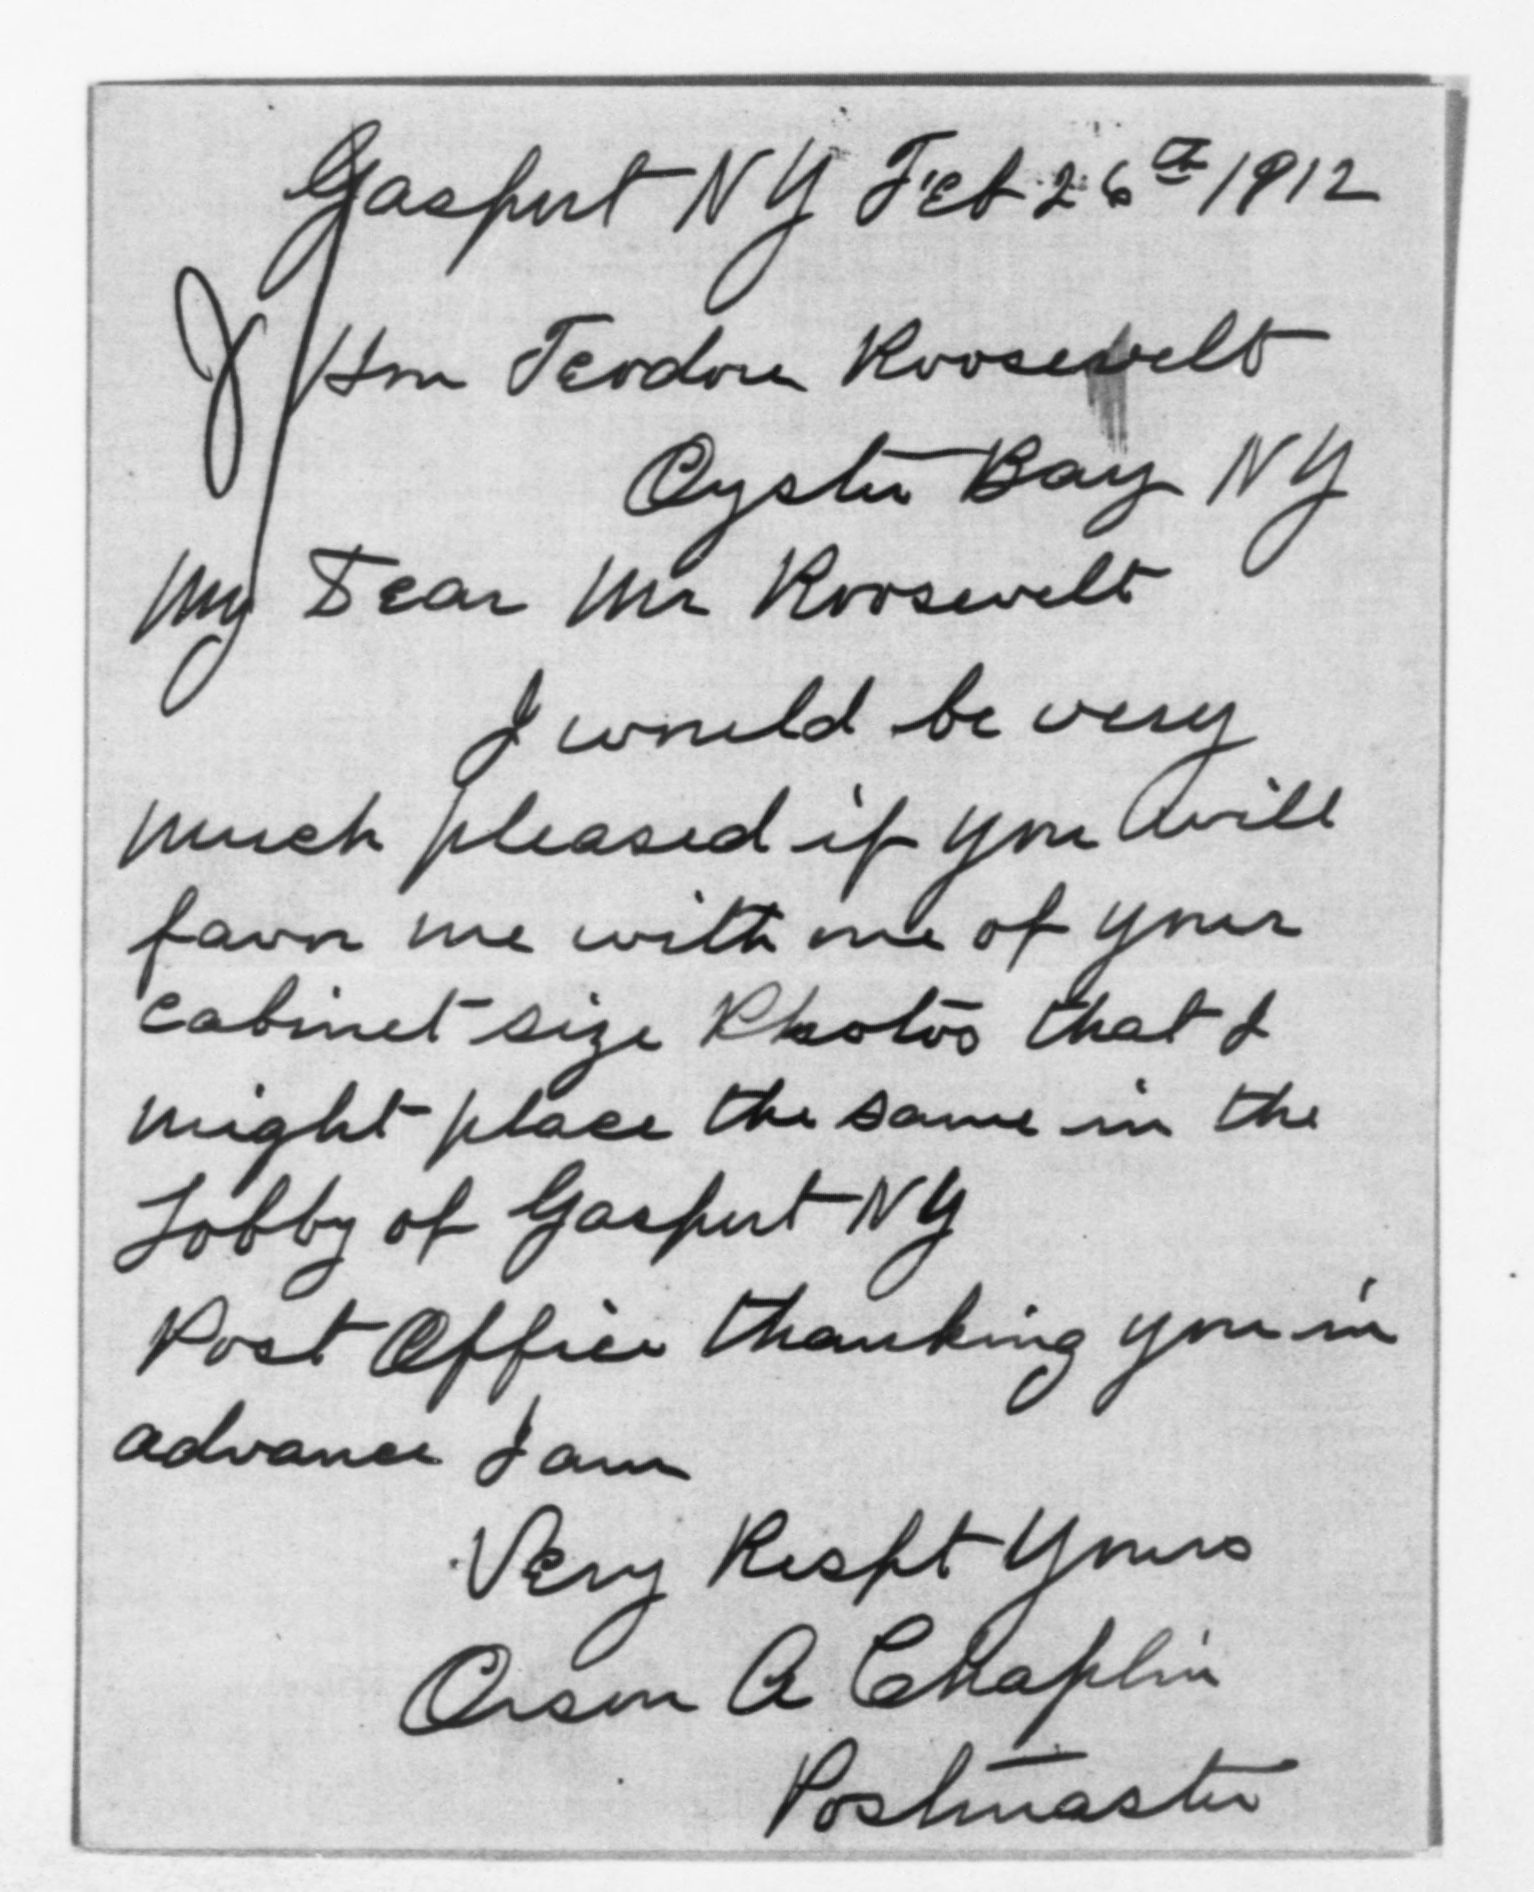 Gasport NY Feb 26th 1912
Hon Teodore Roosevelt
Oyster Bay NY
My Dear Mr Roosevelt
I would be very
much pleased if you will
favor me with one of your
cabinet size Photos that I
might place the same in the
Lobby of Gasport NY
Post Office thanking you in
advance I am
Very Respt Yours
Orson A Chaplin
Postmaster